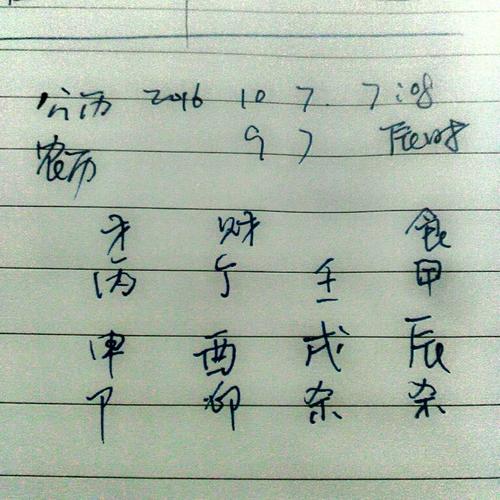 公历 2016 10 7. 7:08
农历 9 7 辰时
才 财 食
丙 丁 壬 甲
申 酉 戌 辰
卩 卯 杀 杀